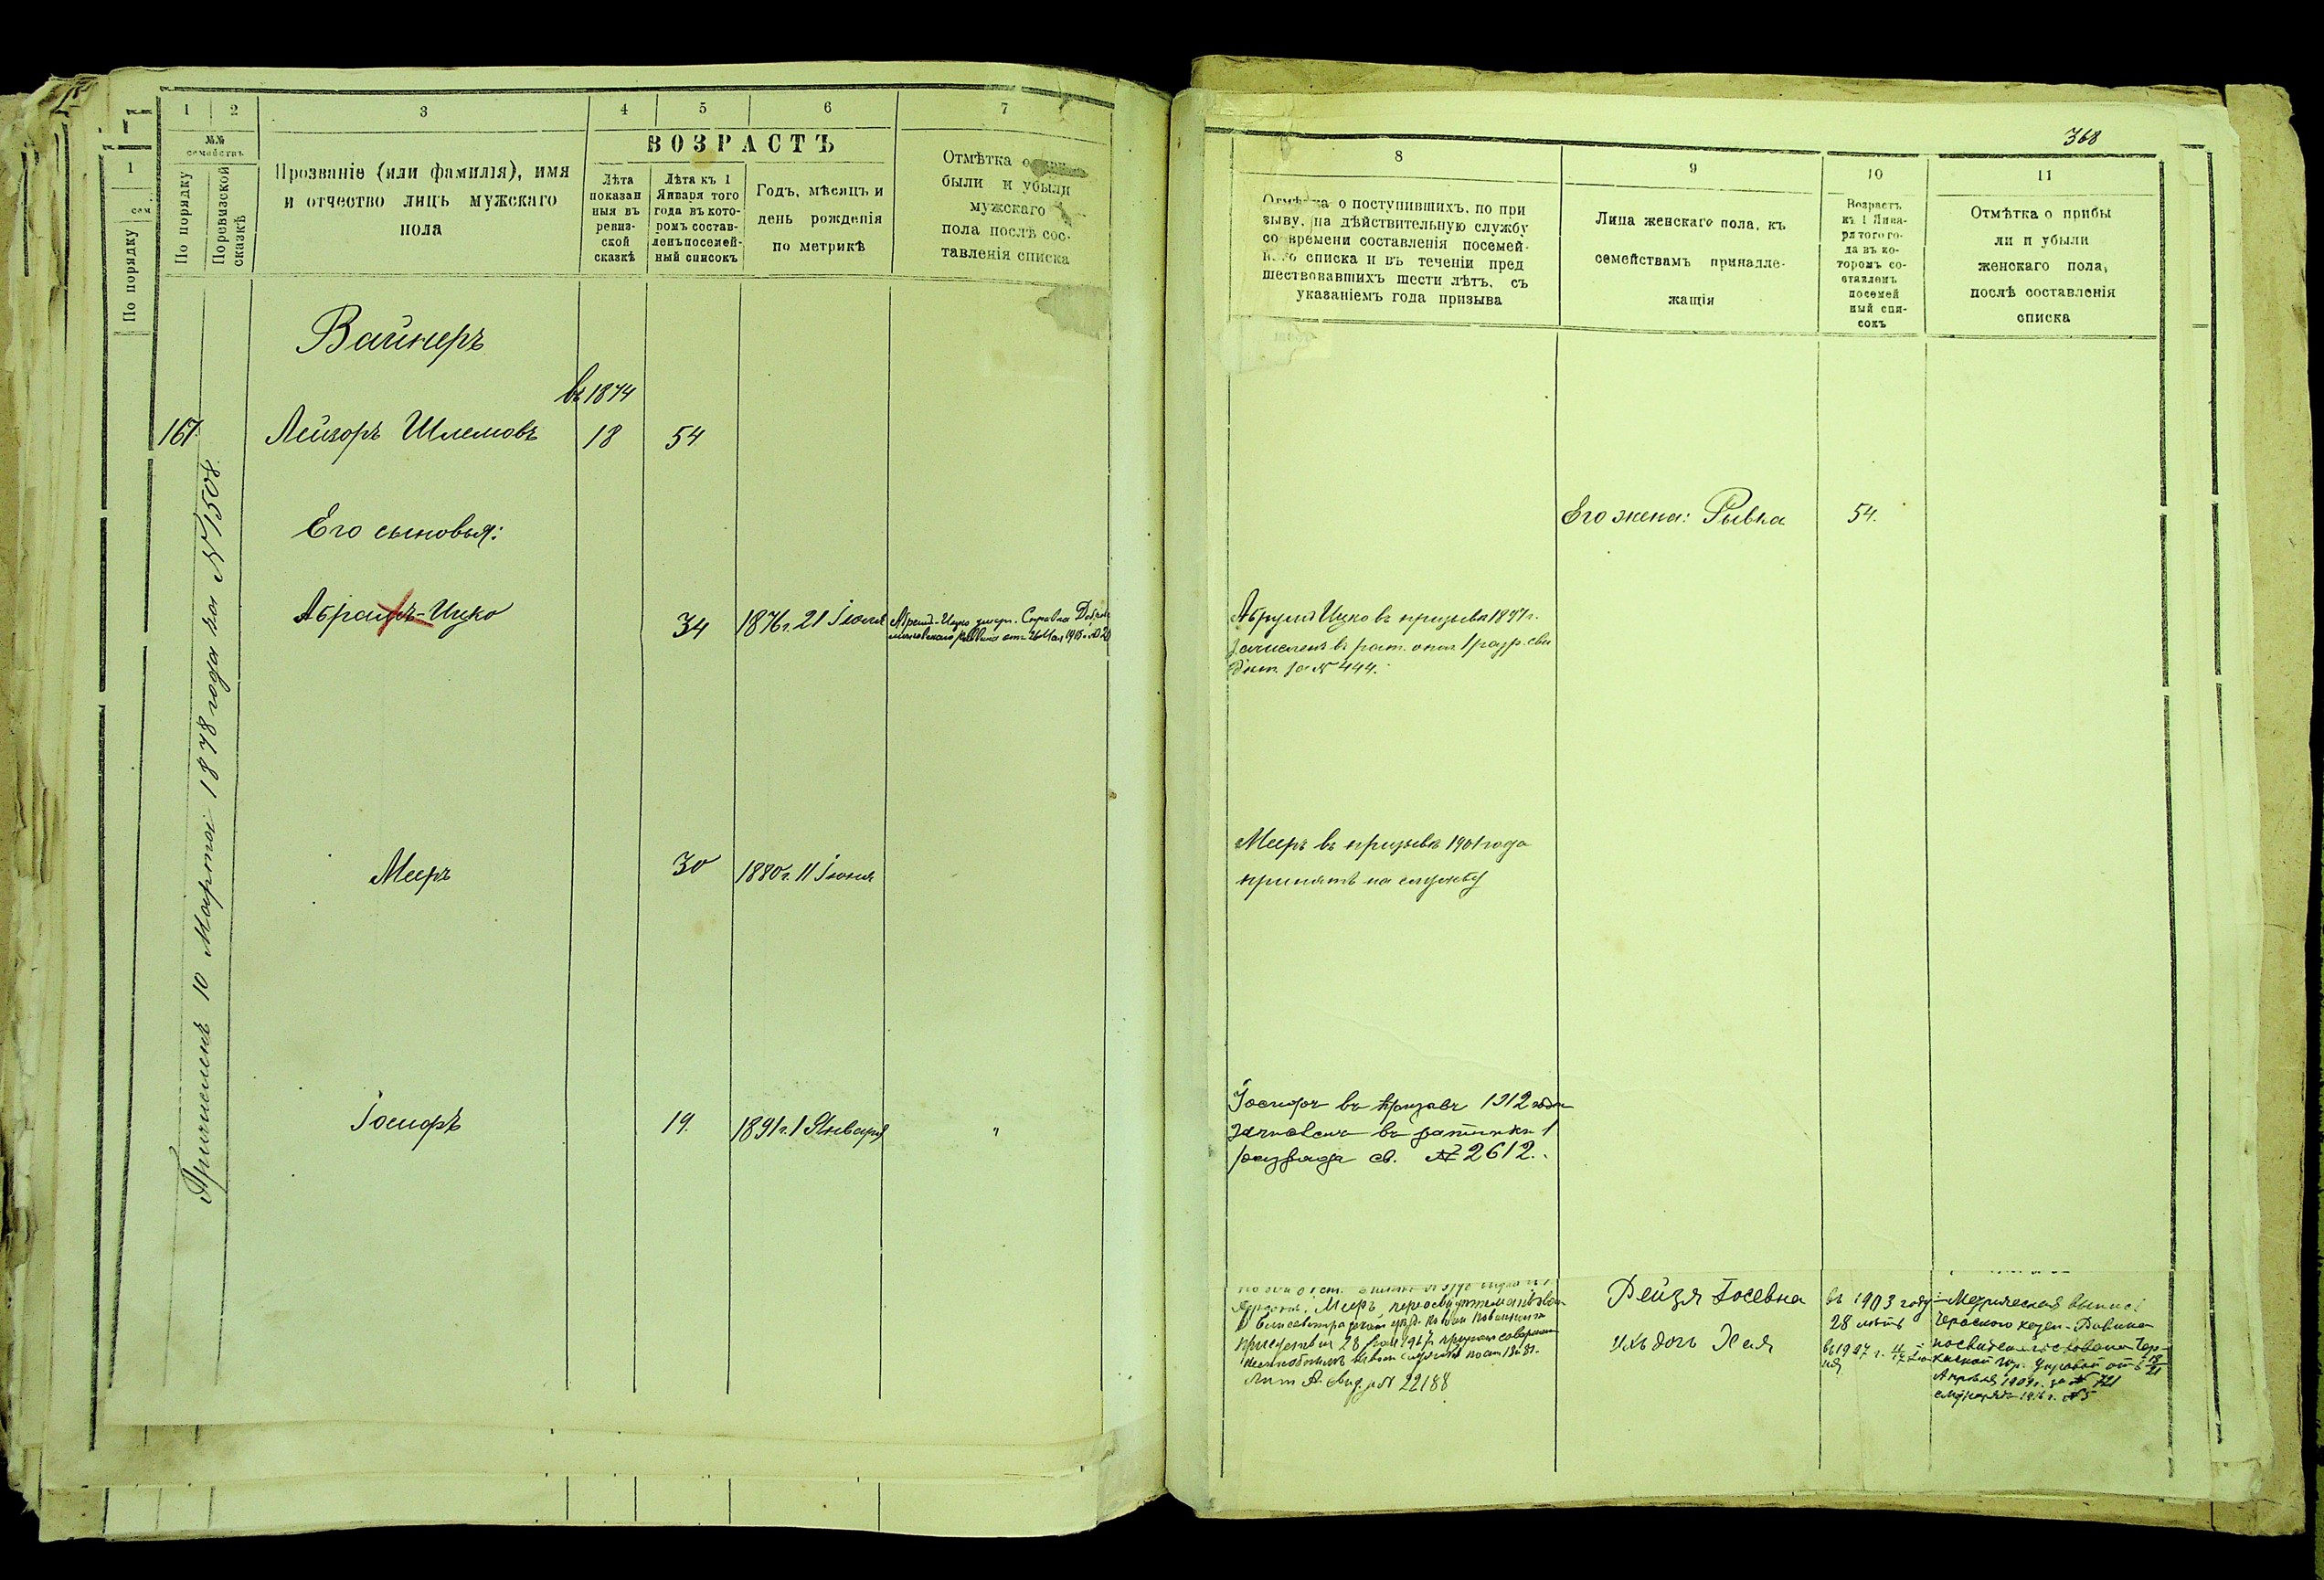 1
2
3
4
5
6
7
№№
семействъ
По порядку
По ревизской
сказкѣ
Прозваніе (или фамилія), имя
и отчество лицъ мужскаго
пола
ВОЗРАСТЪ
Лѣта
показан
ныя въ
ревиз-
ской
сказкѣ
Лѣта къ 1
Января того
года въ кото-
ромъ состав-
ленъ посемей-
ный списокъ
Годъ, мѣсяцъ и
день рожденія
по метрикѣ
Отмѣтка о
были и убыли
мужскаго
пола послѣ сос-
тавленія списка
1
сем
По порядку
Вайнеръ
въ 1874
167
Лейзоръ Шлемовъ
18
54
Его сыновья:
Абрамъ-Ицко
34
1876 г. 21 Іюля
Ицко умеръ. Справка
раввина от
Мееръ
30
1880 г. 11 Іюня
Іосифъ
19.
1891 г. 1 Января
"
Причисленъ 10 Марта 1878 года за № 1508.
368
8
9
10
11
Отмѣтка о поступившихъ, по при
зыву, на дѣйствительную службу
со времени составленія посемей-
наго списка и въ теченіи пред
шествовавшихъ шести лѣтъ, съ
указаніемъ года призыва
Лица женскаго пола, къ
семействамъ принадле-
жащія
Возрастъ
къ 1 Янва-
ря того го-
да въ ко-
торомъ со-
ставленъ
посемей
ный спи-
сокъ
Отмѣтка о прибы
ли и убыли
женскаго пола,
послѣ составленія
списка
Его жена: Рывка
54.
Ицко въ призывъ 1897 г.
зачисленъ въ рат. опол. 1 разр. сви
дѣт. за № 444.
Мееръ въ призывъ 1901 года
принятъ на службу
Іосифъ въ призывъ 1912 года
зачисленъ въ ратники 1
разряда св. № 2612.
Мееръ
въ Елисаветградском уѣзд. по воин повинности
28
Лит А. свид. № 22188
Рейзя Іосевна
ихъ дочь Хая
въ 1903 году
28 лѣтъ
въ 1907 г.
Метрическая выпись
казен. Равина
Управой от
Апрѣля 1909 г. за № 721
№ 5